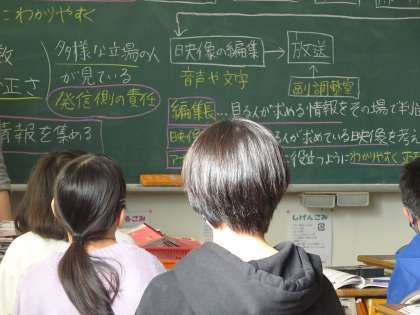 にわかりやすく
数
正さ
多様な立場の人
が見ている
発信側の責任
情報を集める
映像の編集
音声や文字
放送
副調整室
編集長…見る人が求める情報をその場で判
映像
る人が求めている映像を考え
ア
に役立つようにわかりやすく正
しげんごみ